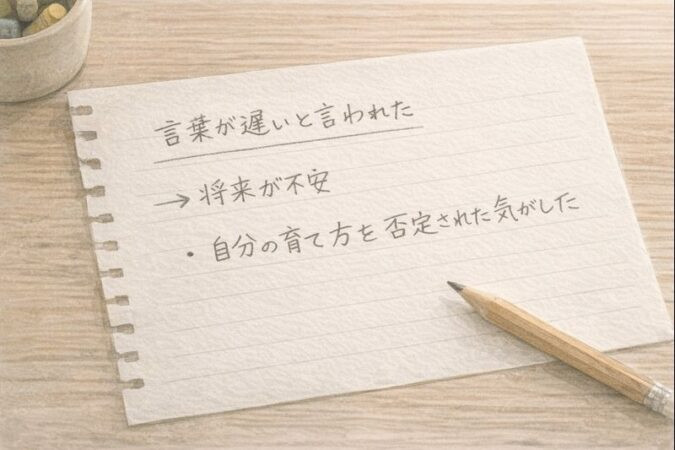 言葉が遅いと言われた
→ 将来が不安
・自分の育て方を否定された気がした